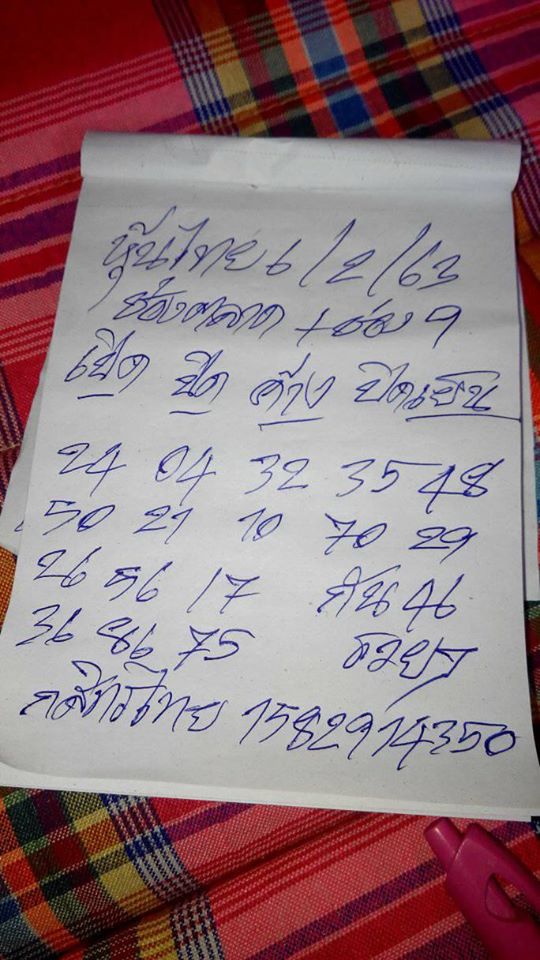 หุ้นไทย 6/2/63
ช่องตลาด + ช่อง 9
เปิด ปิด ค้าง ปิดเย็น
24 04 32 35 48
50 21 10 70 29
26 56 17 กัน 46
36 86 75 รวยๆ
กสิกรไทย 1582914350